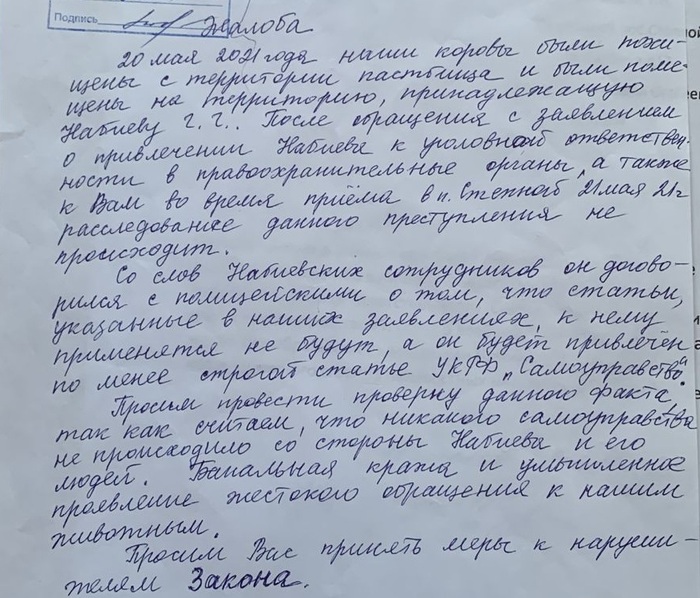 Подпись
Жалоба
20 мая 2021 года наши коровы были похи-
щены с территории пастбища и были поме-
щены на территорию, принадлежащую
Набиеву Г.Г.. После обращения с заявлением
о привлечении Набиева к уголовной ответствен-
ности в правоохранительные органы, а также
к Вам во время приёма в п. Степной 21 мая 21г
расследование данного преступления не
происходит.
Со слов Набиевских сотрудников он догово-
рился с полицейскими о том, что статьи,
указанные в наших заявлениях, к нему
применятся не будут, а он будет привлечён
по менее строгой статье УКРФ „Самоуправство".
Просим провести проверку данного факта,
так как считаем, что никакого самоуправства
не происходило со стороны Набиева и его
людей. Банальная кража и умышленное
проявление жестокого обращения к нашим
животным.
Просим Вас принять меры к наруши-
телям Закона.